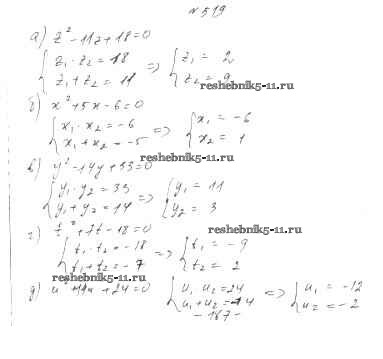 № 519
а) z² - 11z + 18 = 0
{ z₁ · z₂ = 18 => { z₁ = 2
{ z₁ + z₂ = 11 { z₂ = 9
reshebnik5-11.ru
б) x² + 5x - 6 = 0
{ x₁ · x₂ = -6 => { x₁ = -6
{ x₁ + x₂ = -5 { x₂ = 1
reshebnik5-11.ru
в) y² - 14y + 33 = 0
{ y₁ · y₂ = 33 => { y₁ = 11
{ y₁ + y₂ = 14 { y₂ = 3
reshebnik5-11.ru
г) t² + 7t - 18 = 0
{ t₁ · t₂ = -18 => { t₁ = -9
{ t₁ + t₂ = -7 { t₂ = 2
reshebnik5-11.ru
д) u² + 14u + 24 = 0 { u₁ u₂ = 24 => { u₁ = -12
{ u₁ + u₂ = -14 { u₂ = -2
reshebnik5-11.ru
- 167 -